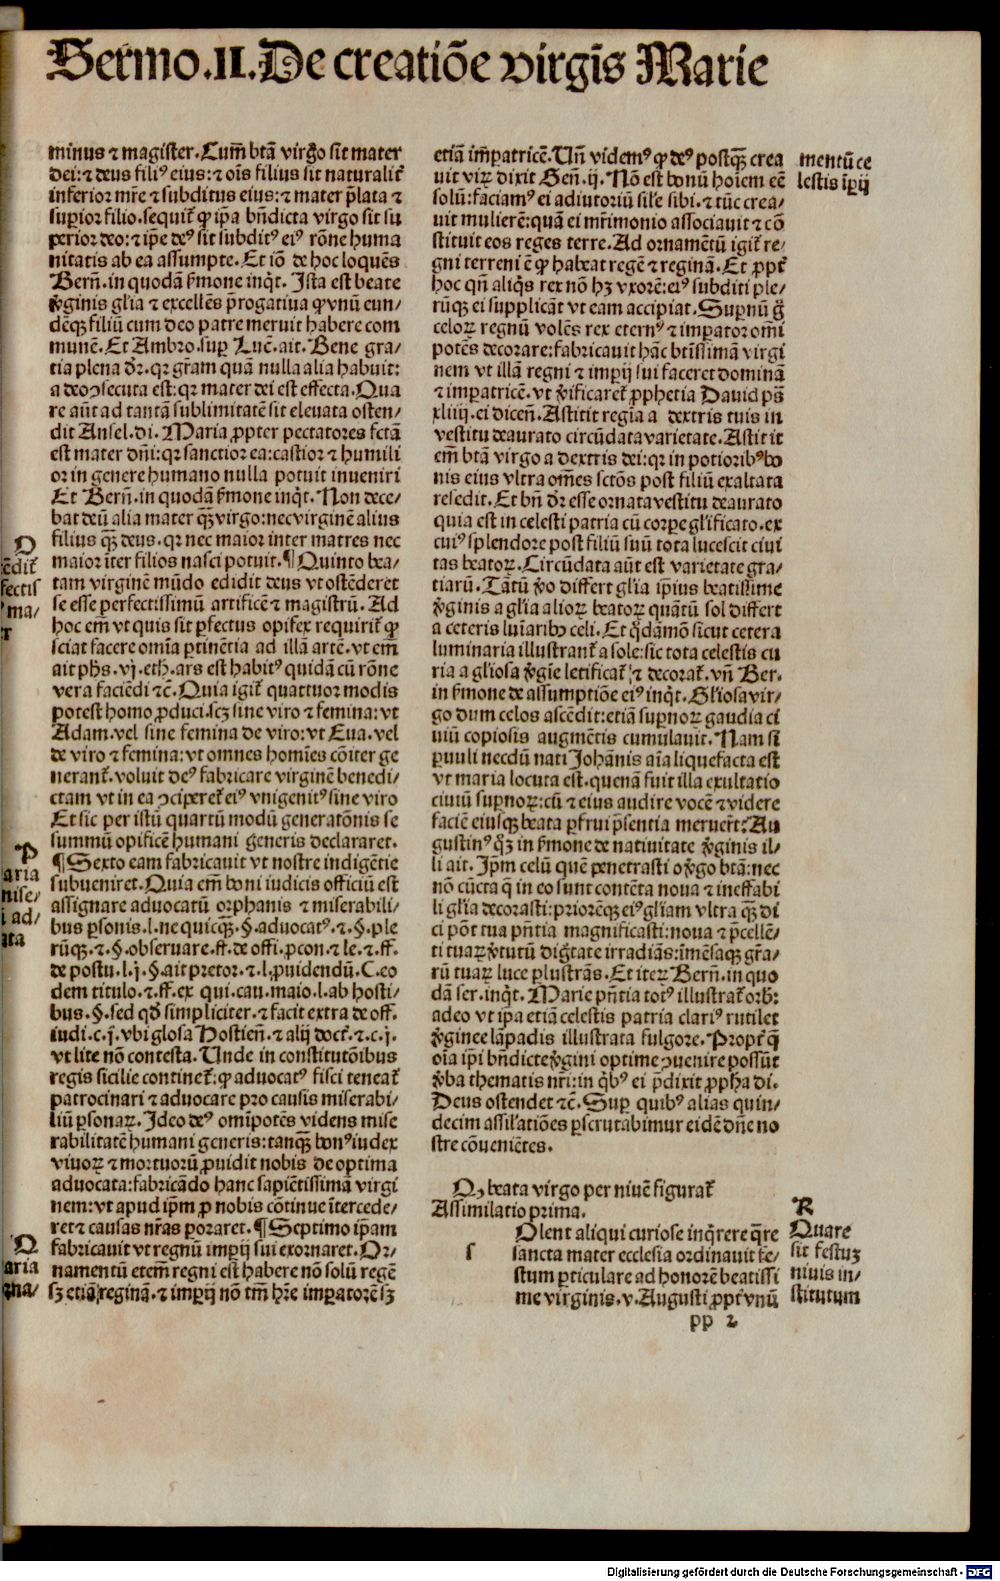 Sermo .II. De creatiōe virgīs Marie
minus ⁊ magister. Cum̄ btā virgo sit mater
dei: ⁊ deus filiꝰ eius: ⁊ oīs filius sit naturalit̄
inferior mr̄e ⁊ subditus eius: ⁊ mater p̄lata ⁊
suꝑior filio. sequit̄ ꝙ ip̄a bn̄dicta virgo sit su
perior deo: ⁊ ip̄e deꝰ sit subditꝰ eiꝰ rōne huma
nitatis ab ea assumpte. Et iō de hoc loquēs
Bern̄. in quodā ẜmone inq̇t. Ista est beate
ꝟginis gl̄ia ⁊ excellēs p̄rogatiua ꝙ vnū eun⸗
dēqꝫ filiū cum deo patre meruit habere com
munē. Et Ambro. suꝑ Luc̄. ait. Bene gra⸗
tia plena dr̄. qr gr̄am quā nulla alia habuit:
a deo ↄsecuta est: qr mater dei est effecta. Qua
re aūt ad tantā sublimitatē sit eleuata osten⸗
dit Ansel. di. Maria ꝓpter peccatores fctā
est mater dn̄i: qr sanctior ea: castior ⁊ humili
or in genere humano nulla potuit inueniri
Et Bern̄. in quodā ẜmone inq̇t. Non dece⸗
bat deū alia mater qꝫ̄ virgo: nec virginē alius
filius qꝫ̄ deus. qr nec maior inter matres nec
maior īter filios nasci potuit. ¶ Quinto bea⸗
tam virginē mūdo edidit deus vt ostēderet
se esse perfectissimū artificē ⁊ magistrū. Ad
hoc em̄ vt quis sit ꝑfectus opifex requirit̄ ꝙ
sciat facere omīa ꝑtinētia ad illā artē. vt em̄
ait ph̄s. vj. eth. ars est habitꝰ quidā cū rōne
vera faciēdi ⁊c̄. Quia igit̄ quattuor modis
potest homo ꝓduci. scꝫ sine viro ⁊ femina: vt
Adam. vel sine femina de viro: vt Eua. vel
de viro ⁊ femina: vt omnes homīes cōiter ge
nerant̄. voluit deꝰ fabricare virginē benedi⸗
ctam vt in ea ↄciperet̄ eiꝰ vnigenitꝰ sine viro
Et sic per istū quartū modū generatōnis se
summū opificē humani generis declararet.
¶ Sexto eam fabricauit vt nostre indigētie
subueniret. Quia em̄ boni iudicis officiū est
assignare aduocatū orphanis ⁊ miserabili⸗
bus ꝑsonis. l. ne quicqꝫ̄. §. aduocatꝰ. ⁊ .§. ple
rūqꝫ. ⁊ .§. obseruare. ff. de offi. ꝓcon. ⁊ le. ⁊ .ff.
de postu. l. j. §. ait pretor. ⁊ .l. ꝓuidendū. C. eo
dem titulo. ⁊ .ff. ex qui. cau. maio. l. ab hosti⸗
bus. §. sed qđ simpliciter. ⁊ facit extra de off.
iudi. c. j. vbi glosa Hostien̄. ⁊ alij doct̄. ⁊ .c. j.
vt lite nō contesta. Unde in constitutōibus
regis sicilie continet̄: ꝙ aduocatꝰ fisci teneat̄
patrocinari ⁊ aduocare pro causis miserabi⸗
liū ꝑsonaꝝ. Ideo deꝰ omīpotēs videns mise
rabilitatē humani generis: tanqꝫ̄ bonꝰ iudex
viuoꝝ ⁊ mortuorū ꝓuidit nobis de optima
aduocata: fabricādo hanc sapiētissimā virgi
nem: vt apud ip̄m ꝓ nobis cōtinue ītercede⸗
ret ⁊ causas nr̄as ꝑoraret. ¶ Septimo ip̄am
fabricauit vt regnū imꝑij sui exornaret. Or⸗
namentū etem̄ regni est habere nō solū regē
sꝫ etiā reginā. ⁊ imꝑij nō tm̄ hr̄e imꝑatorē sꝫ
Q
ēdit̄
fectis
ma⸗
r
P
aria
nise⸗
i ad⸗
ata
Q
aria
rna⸗
etiā im̄ꝑatricē. Un̄ videmꝰ ꝙ deꝰ postqꝫ̄ crea
uit viꝝ dixit Gen̄. ij. Nō est bonū hoīem eē
solū: faciamꝰ ei adiutoriū sil̄e sibi. ⁊ tūc crea⸗
uit mulierē: quā ei mr̄imonio associauit ⁊ cō
stituit eos reges terre. Ad ornamētū igit̄ re⸗
gni terreni ē ꝙ habeat regē ⁊ reginā. Et ꝓpt̄
hoc qn̄ aliq̇s rex nō hꝫ vxorē: eiꝰ subditi ple⸗
rūqꝫ ei supplicāt vt eam accipiat. Suꝑnū g̊
celoꝝ regnū volēs rex eternꝰ ⁊ imꝑator omī
potēs decorare: fabricauit hāc btīssimā virgi
nem vt illā regni ⁊ imꝑij sui faceret dominā
⁊ imꝑatricē. vt ꝟificaret̄ ꝓphetia Dauid ps̄
xliiij. ei dicen̄. Astitit regia a dextris tuis in
vestitu deaurato circūdata varietate. Astitit
em̄ btā virgo a dextris dei: qr in potioribꝰ bo
nis eius vltra om̄es sctōs post filiū exaltata
resedit. Et bn̄ dr̄ esse ornata vestitu deaurato
quia est in celesti patria cū corꝑe gl̄ificato. ex
cuiꝰ splendore post filiū suū tota lucescit ciui
tas beatoꝝ. Circūdata aūt est varietate gra⸗
tiarū. Tātū ꝟo differt gl̄ia ip̄ius beatissime
ꝟginis a gl̄ia alioꝝ beatoꝝ quātū sol differt
a ceteris luīaribꝰ celi. Et q̇dāmō sicut cetera
luminaria illustrant̄ a sole: sic tota celestis cu
ria a gl̄iosa ꝟgīe letificat̄ ⁊ decorat̄. vn̄ Ber.
in ẜmone de assumptiōe eiꝰ inq̇t. Gl̄iosa vir⸗
go dum celos ascēdit: etiā suꝑnoꝝ gaudia ci
uiū copiosis augmētis cumulauit. Nam si
ꝑuuli necdū nati Johānis aīa liquefacta est
vt maria locuta est. quenā fuit illa exultatio
ciuiū suꝑnoꝝ: cū ⁊ eius audire vocē ⁊ videre
faciē eiusqꝫ beata ꝑfrui p̄sentia meruer̄t: Au
gustinꝰ qꝫ in ẜmone de natiuitate ꝟginis il⸗
li ait. Ip̄m celū quē penetrasti o ꝟgo btā: nec
nō cūcta q̄ in eo sunt contēta noua ⁊ ineffabi
li gl̄ia decorasti: priorēqꝫ eiꝰ gl̄iam vltra qꝫ̄ di
ci pōt tua pn̄tia magnificasti: noua ⁊ p̄cellē⸗
ti tuaꝝ ꝟtutū dig̊tate irradiās: īmēsaqꝫ gr̄a⸗
rū tuaꝝ luce ꝑlustrās. Et iteꝝ Bern̄. in quo
dā ser. inq̇t. Marie pn̄tia totꝰ illustrat̄ orb̄:
adeo vt ip̄a etiā celestis patria clariꝰ rutilet
ꝟginee lāpadis illustrata fulgore. Propt̄ q̄
oīa ip̄i bn̄dicte ꝟgini optime ↄuenire possūt
ꝟba thematis nr̄i: in q̇bꝰ ei p̄dixit ꝓpha di.
Deus ostendet ⁊c̄. Suꝑ quibꝰ alias quin⸗
decim assil̄atiōes ꝑscrutabimur eidē dn̄e no
stre cōueniētes.
Qꝙ beata virgo per niuē figurat̄
Assimilatio prima.
s
Olent aliqui curiose inq̇rere q̄re
sancta mater ecclesia ordinauit fe⸗
stum ꝑticulare ad honorē beatissi
me virginis. v. Augusti ꝓpt̄ vnū
pp 2
mentū ce
lestis īꝑij
R
Quare
sit festuꝫ
niuis in⸗
stitutum
Digitalisierung gefördert durch die Deutsche Forschungsgemeinschaft - DFG